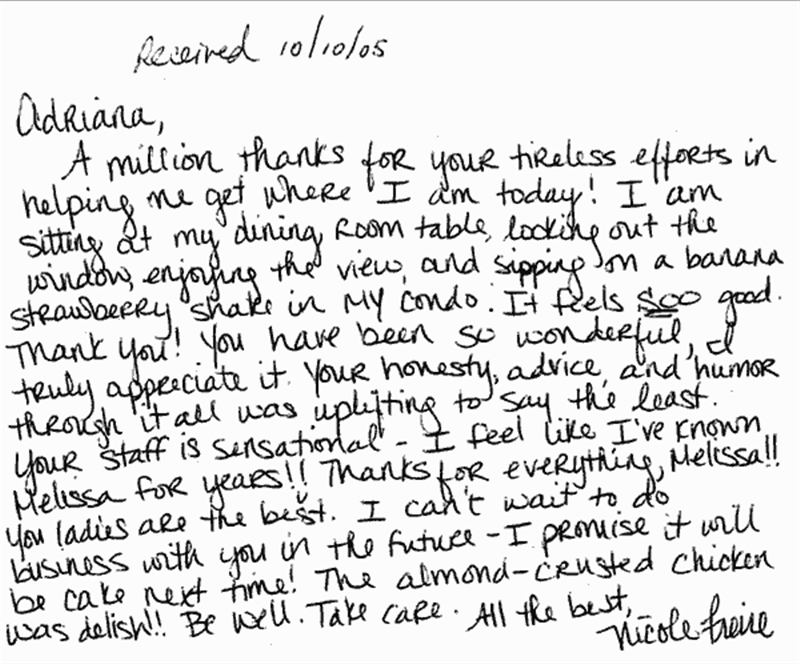 Received 10/10/05
Adriana,
A million thanks for your tireless efforts in
helping me get where I am today! I am
sitting at my dining room table, looking out the
window, enjoying the view, and sipping on a banana
strawberry shake in my condo. It feels soo good.
Thank you! You have been so wonderful, I
truly appreciate it. Your honesty, advice, and humor
through it all was uplifting to say the least.
Your staff is sensational - I feel like I've known
Melissa for years!! Thanks for everything, Melissa!!
You ladies are the best. I can't wait to do
business with you in the future - I promise it will
be cake next time! The almond-crusted chicken
was delish!! Be well. Take care. All the best,
Nicole Freire